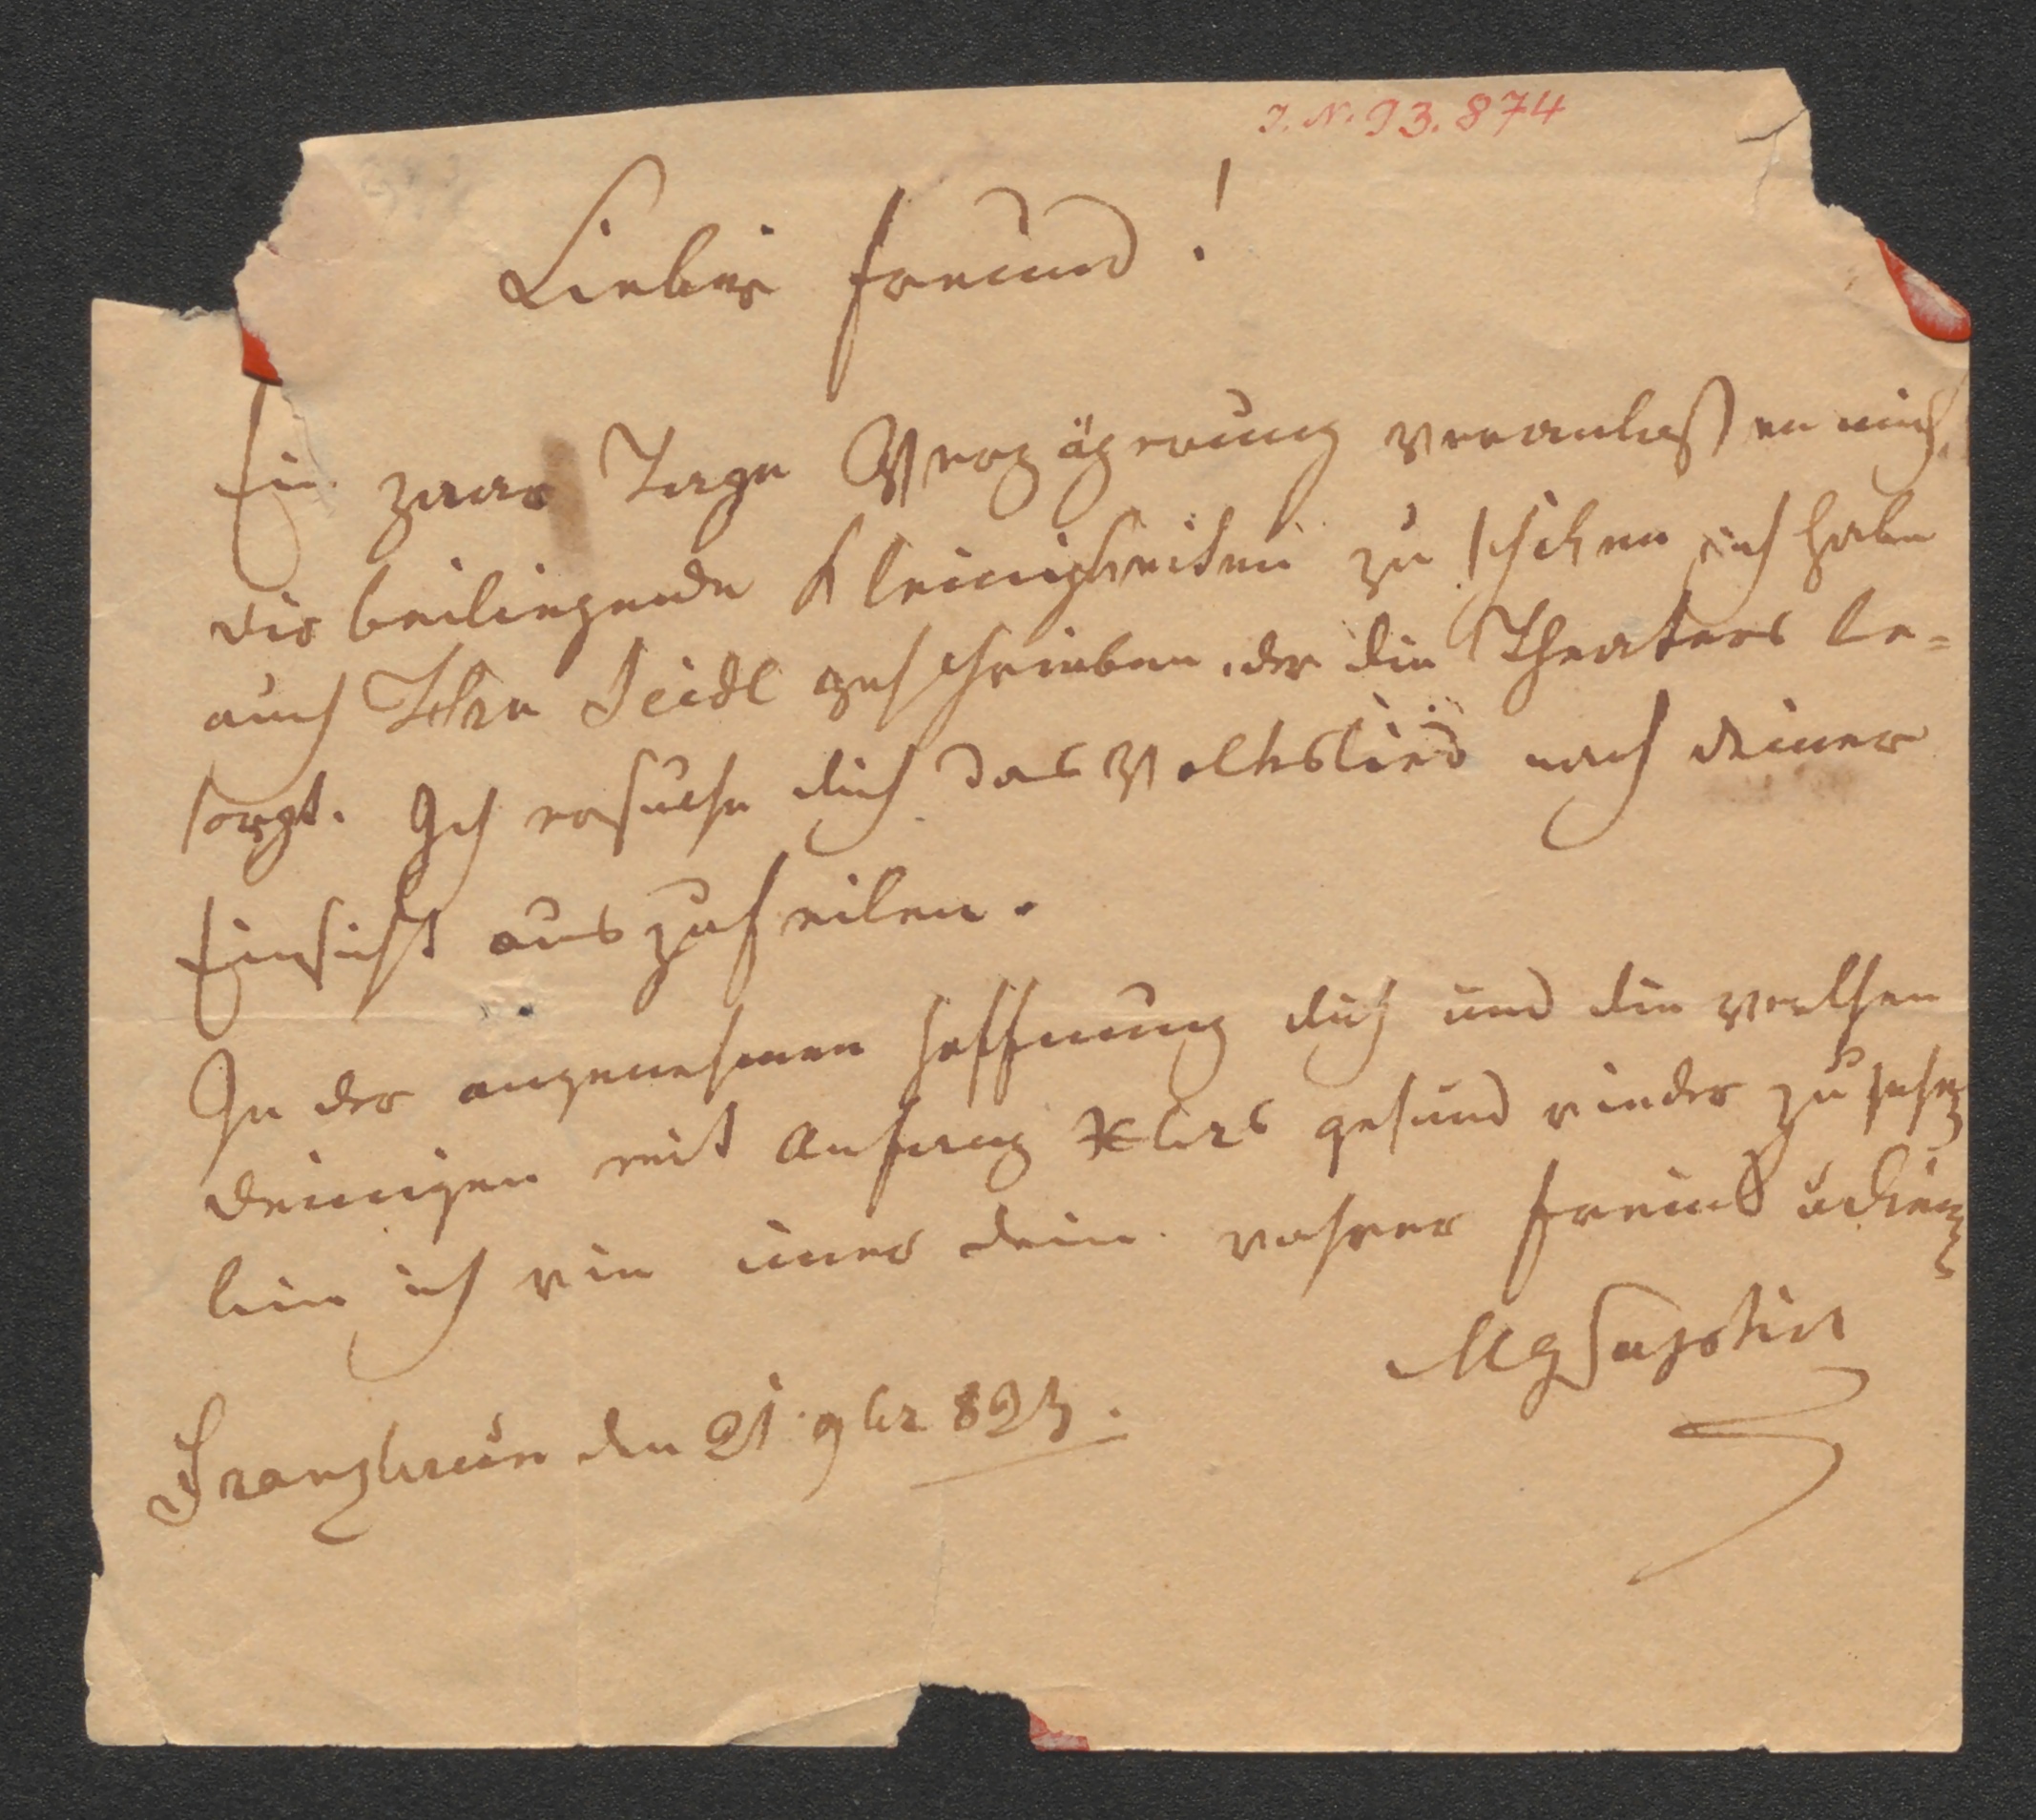 I. N. 93.874
Lieber Freund!
Ein paar Tage Verzögerung veranlassen mich
dir beiliegende Kleinigkeiten zu schicken ich habe
auch Seidl geschrieben, der die Theaters be=
sorgt. Ich ersuche dich das Volkslied nach deiner
Einsicht auszufeilen.
In der angenehmen Hoffnung dich und die
deinigen mit Anfang Xbrs gesund wieder zu sehen
bin ich wie imer dein wahrer Freund
Franzbrun den 21 9br 823.